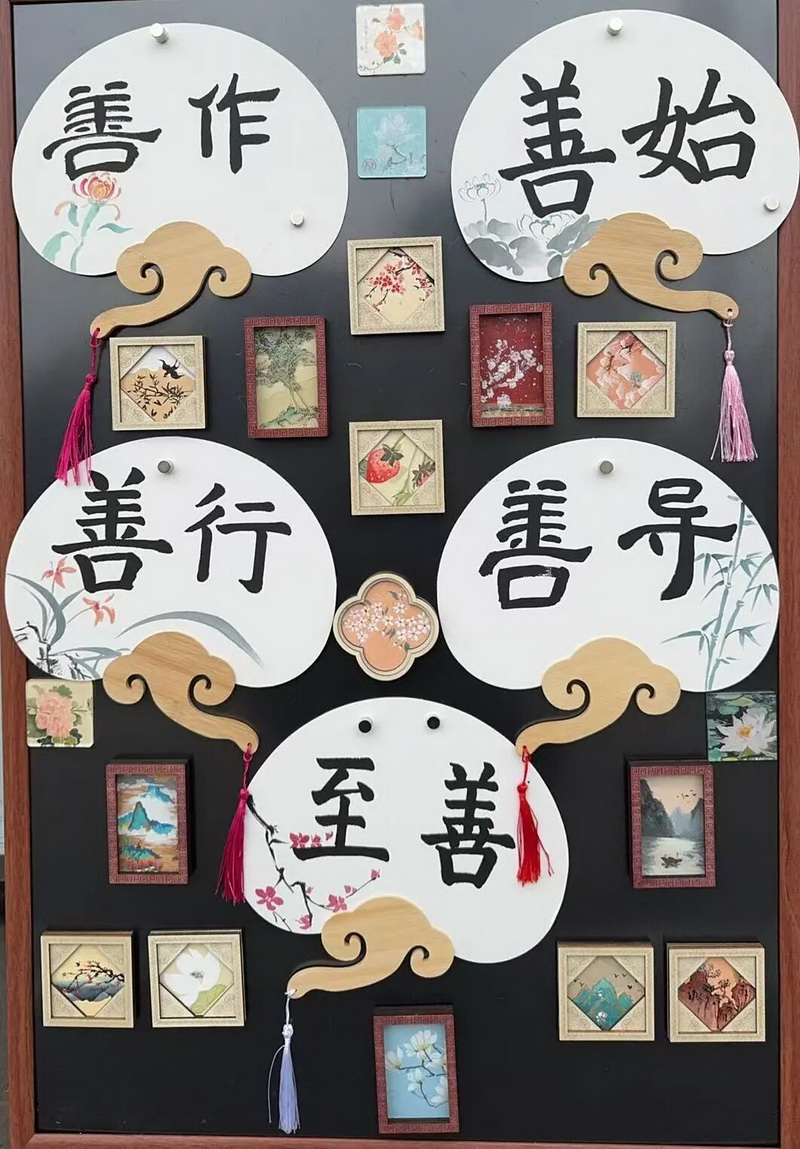 善作
善始
善行
善导
至善